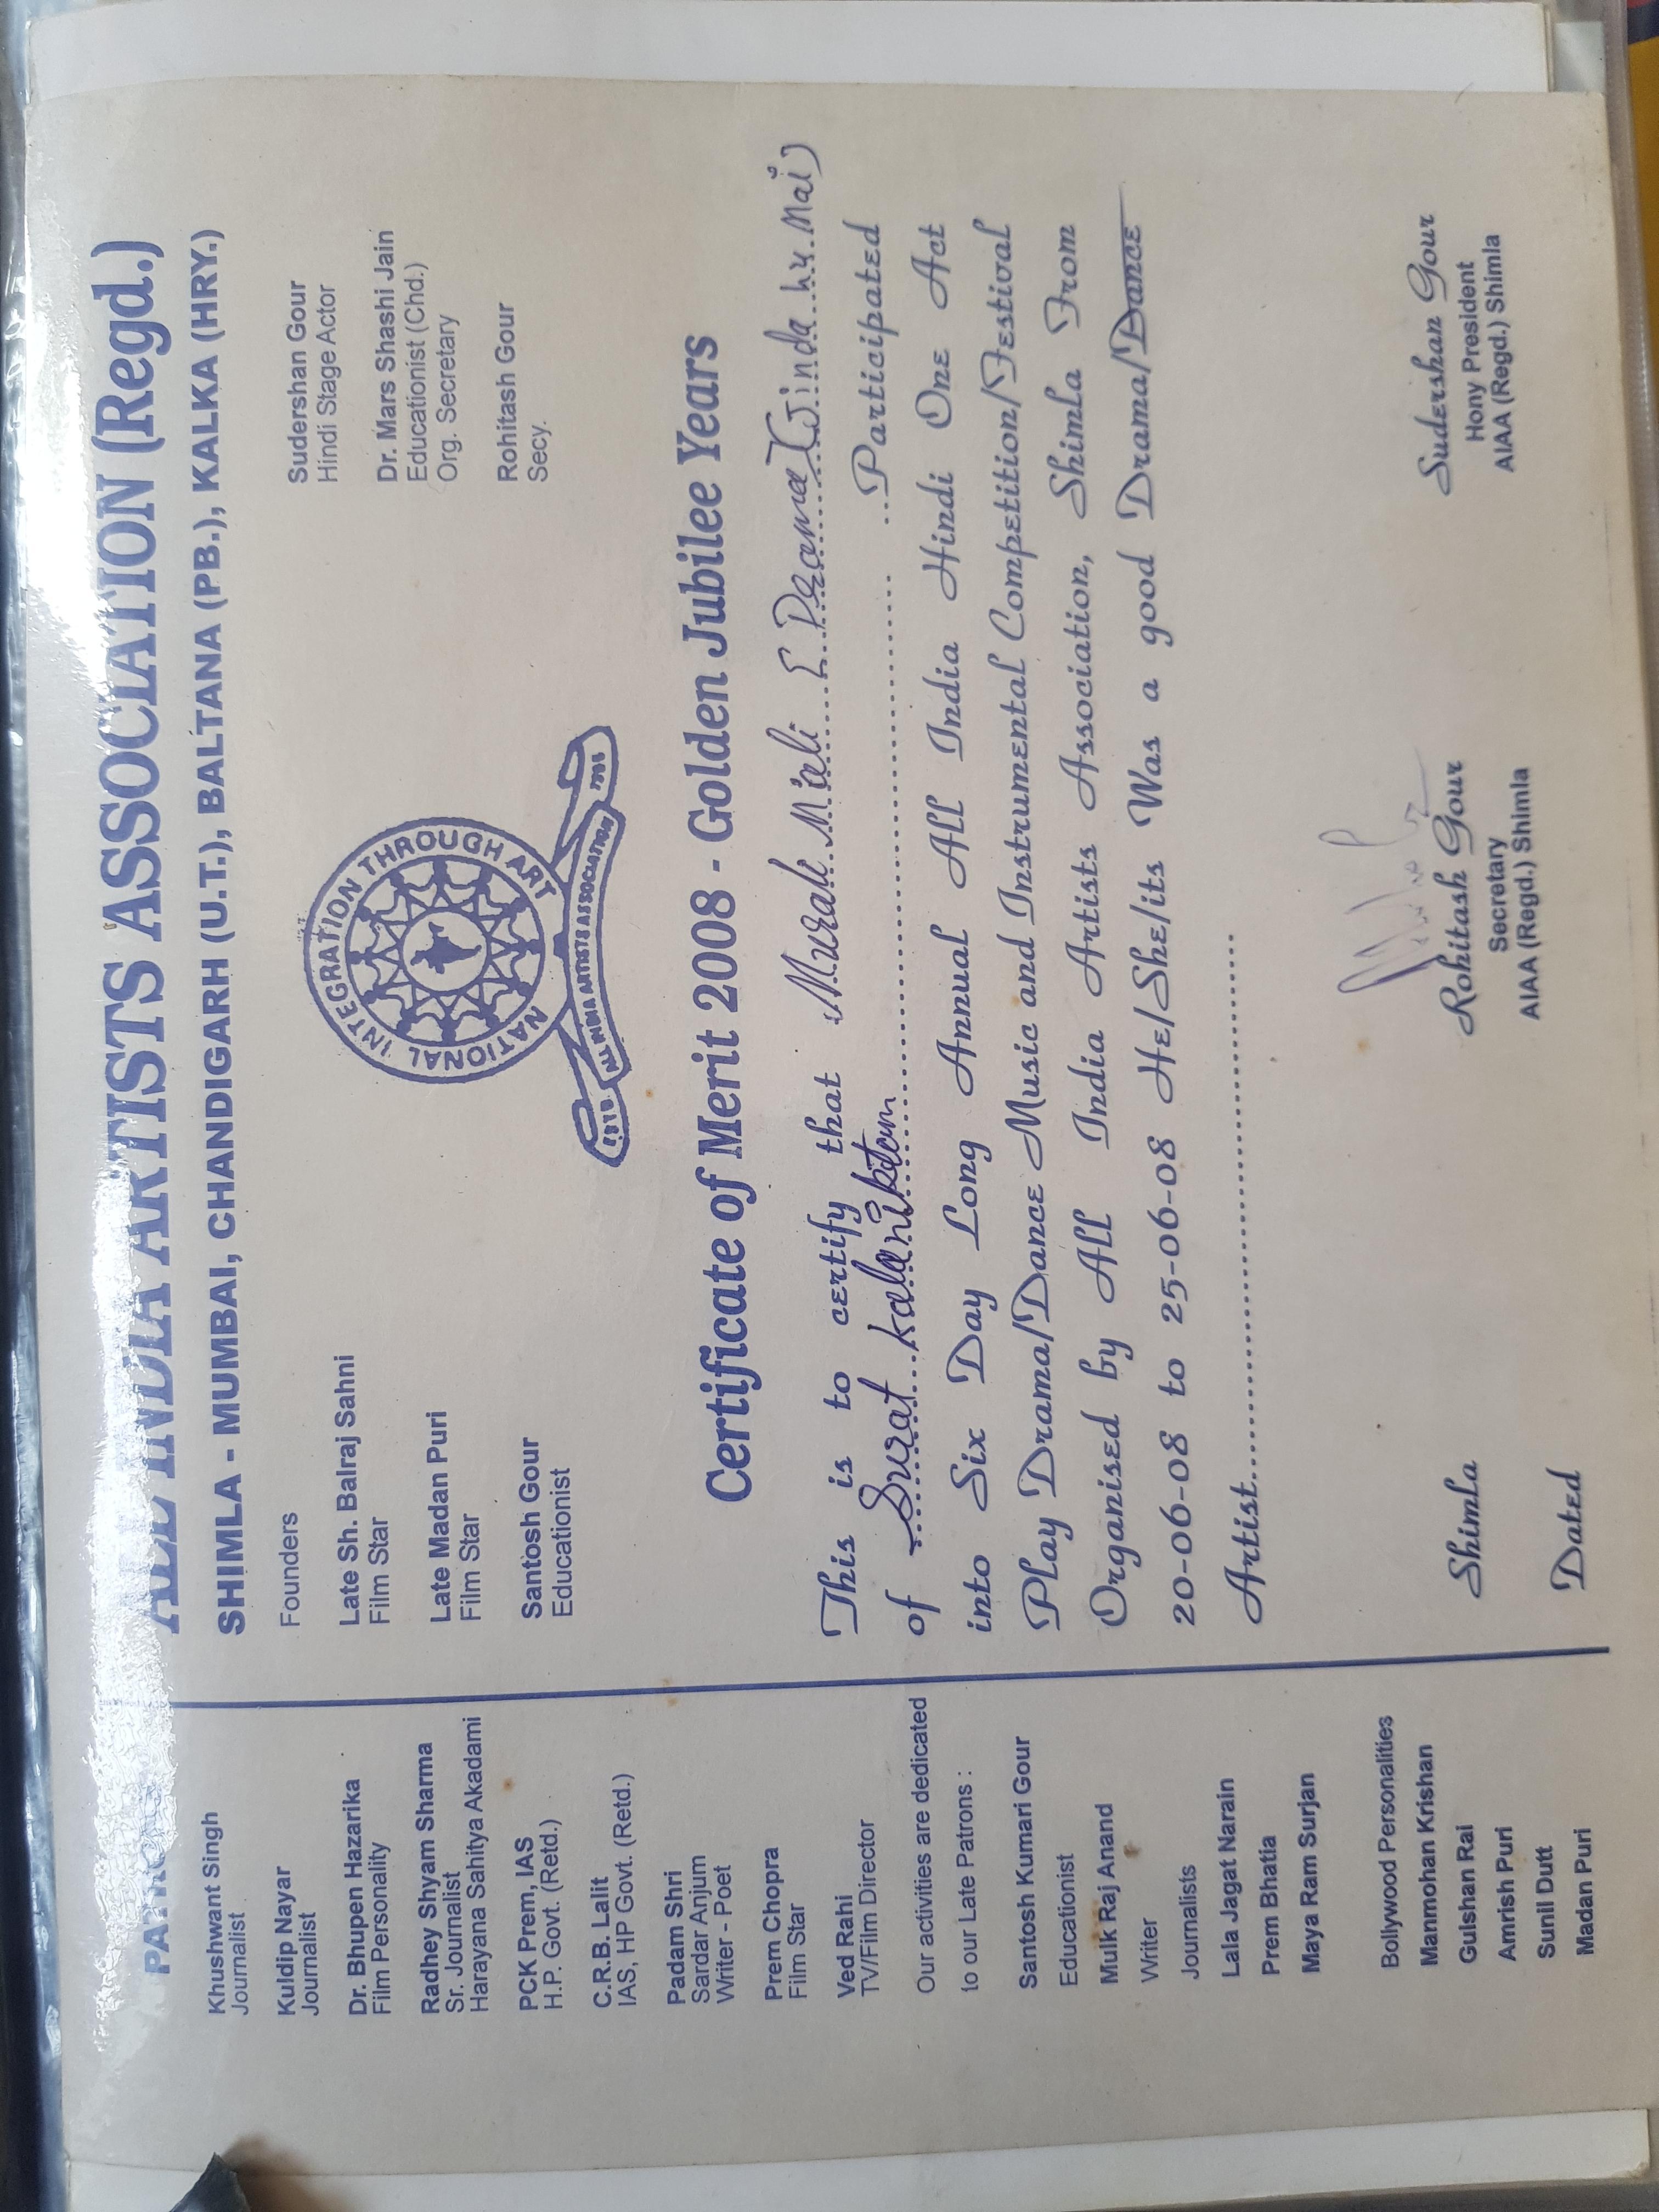 ALL INDIA ARTISTS ASSOCIATION (Regd.)
SHIMLA - MUMBAI, CHANDIGARH (U.T.), BALTANA (PB.), KALKA (HRY.)
Khushwant Singh
Journalist
Kuldip Nayar
Journalist
Dr. Bhupen Hazarika
Film Personality
Radhey Shyam Sharma
Sr. Journalist
Harayana Sahitya Akadami
PCK Prem, IAS
H.P. Govt. (Retd.)
C.R.B. Lalit
IAS, HP Govt. (Retd.)
Padam Shri
Sardar Anjum
Writer - Poet
Prem Chopra
Film Star
Ved Rahi
TV/Film Director
Our activities are dedicated
to our Late Patrons :
Santosh Kumari Gour
Educationist
Mulk Raj Anand
Writer
Journalists
Lala Jagat Narain
Prem Bhatia
Maya Ram Surjan
Bollywood Personalities
Manmohan Krishan
Gulshan Rai
Amrish Puri
Sunil Dutt
Madan Puri
Founders
Late Sh. Balraj Sahni
Film Star
Late Madan Puri
Film Star
Santosh Gour
Educationist
NATIONAL INTEGRATION THROUGH ART
ALL INDIA ARTISTS ASSOCIATION
ESTD 1955
Sudershan Gour
Hindi Stage Actor
Dr. Mars Shashi Jain
Educationist (Chd.)
Org. Secretary
Rohitash Gour
Secy.
Certificate of Merit 2008 - Golden Jubilee Years
This is to certify that Murali Drama (Jinda hu Mai)
of Surat kalaniketan Participated
into Six Day Long Annual All India Hindi One Act
Play Drama/Dance Music and Instrumental Competition/Festival
Organised by All India Artists Association, Shimla From
20-06-08 to 25-06-08 He/She/its Was a good Drama/Dance
Artist
Shimla
Dated
Rohitash Gour
Secretary
AIAA (Regd.) Shimla
Sudershan Gour
Hony President
AIAA (Regd.) Shimla